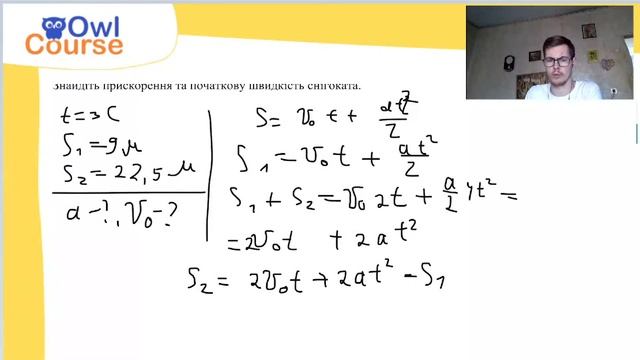 Owl
Course
Знайдіть прискорення та початкову швидкість снігоката.
t=3c
S₁=9м
S₂=22,5м
a-?, V₀-?
S= V₀ t + at²/2
S₁=V₀t + at²/2
S₁+S₂=V₀ 2t + a/2 4t² =
=2V₀t + 2at²
S₂= 2V₀t+2at²-S₁